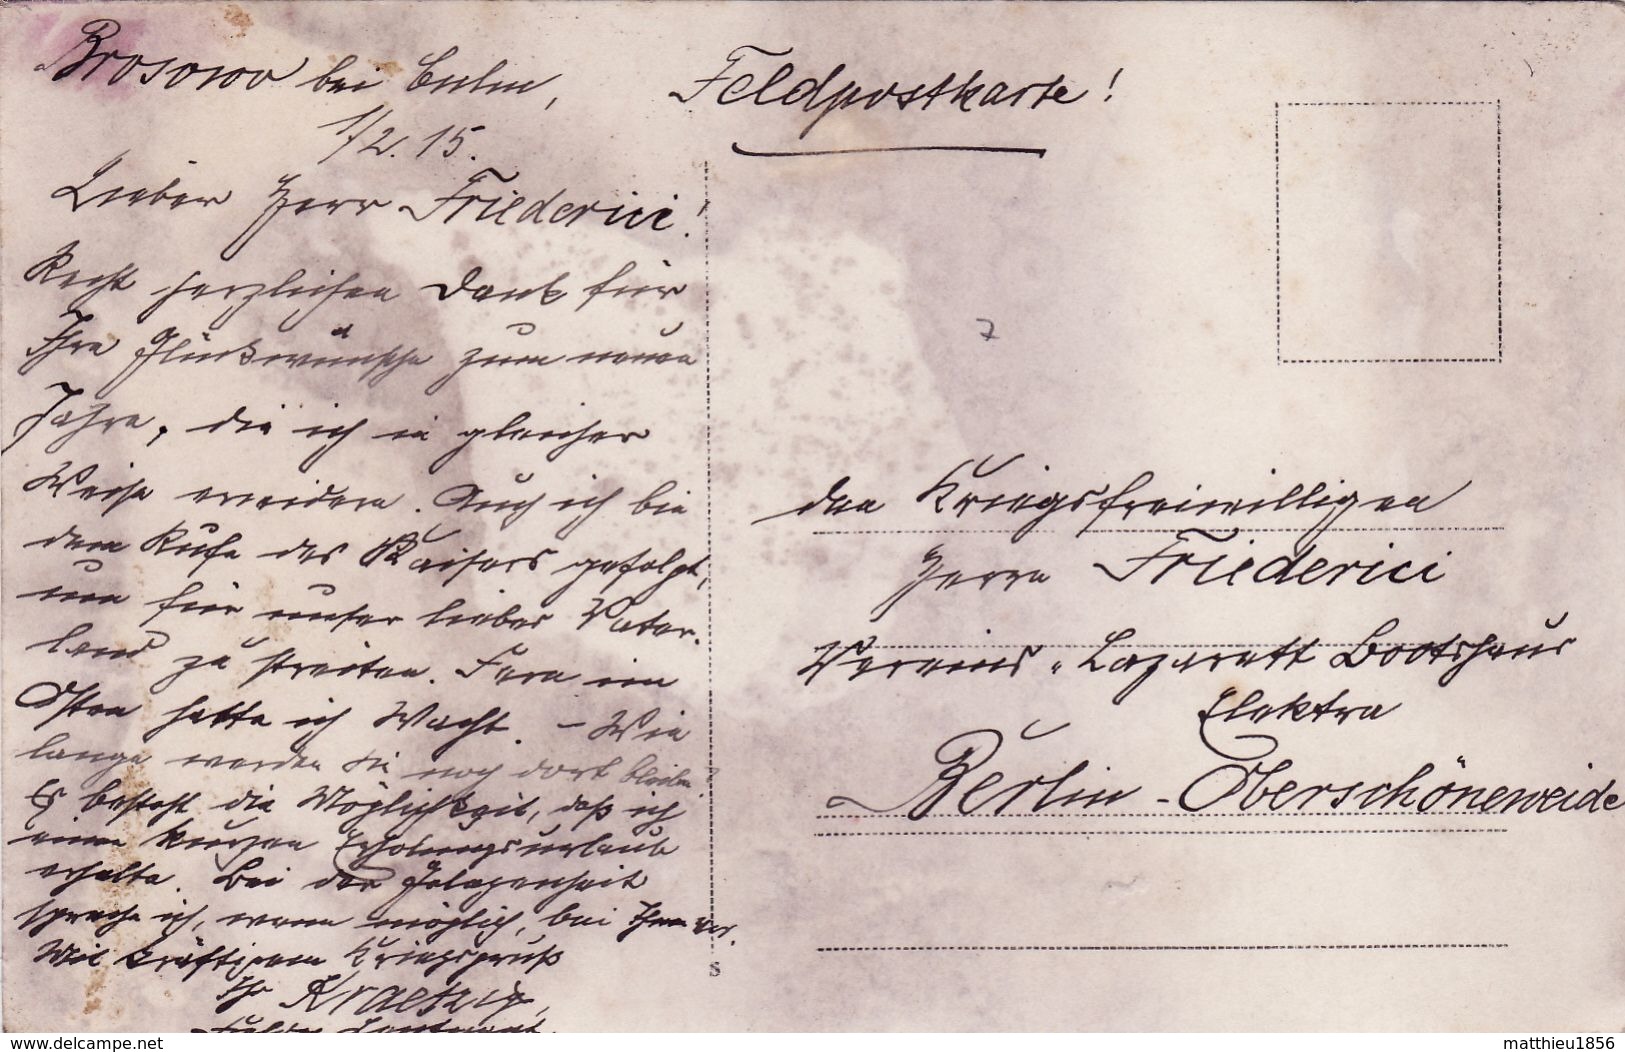 Brosowo bei Culm,
1/2. 15.
Lieber Herr Friederici!
Recht herzlichen Dank für
Ihre Glückwünsche zum neuen
Jahre, die ich in gleicher
Weise erwidere. Auch ich bin
dem Rufe des Kaisers gefolgt,
um für unser liebes Vater-
land zu streiten. Fern im
Osten halte ich Wacht. – Wie
lange werden Sie noch dort bleiben?
Es besteht die Möglichkeit, daß ich
einen kurzen Erholungsurlaub
erhalte. Bei der Gelegenheit
spreche ich, wenn möglich, bei Ihnen vor.
Mit kräftigem Kriegsgruß
Ihr Kraetzig,
Feldpostkarte!
7
den Kriegsfreiwilligen
Herrn Friederici
Vereins-Lazarett Bootshaus
Elektra
Berlin-Oberschöneweide
S
www.delcampe.net
matthieu1856